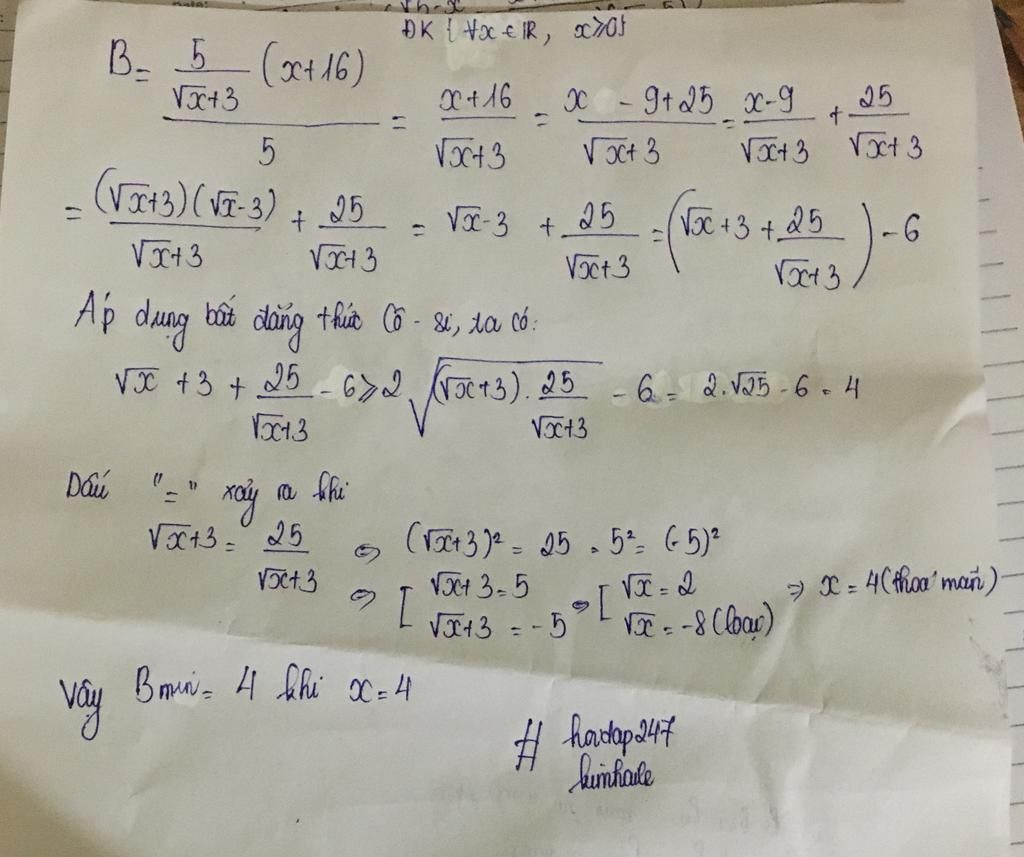 ĐK {∀x ∈ ℝ, x ≥ 0}
B = (5/(√x+3) (x+16))/5 = (x+16)/(√x+3) = (x - 9+25)/(√x+3) = (x-9)/(√x+3) + 25/(√x+3)
= ((√x+3)(√x-3))/(√x+3) + 25/(√x+3) = √x-3 + 25/(√x+3) = (√x+3 + 25/(√x+3)) - 6
Áp dụng bất đẳng thức Cô-si, ta có:
√x + 3 + 25/(√x+3) - 6 ≥ 2√((√x+3).25/(√x+3)) - 6 = 2.√25 - 6 = 4
Dấu "=" xảy ra khi
√x+3 = 25/(√x+3) ⇔ (√x+3)² = 25 = 5² = (-5)²
⇔ [ √x+3=5 ⇔ [ √x = 2 ⇒ x = 4 (thoả mãn)
√x+3 = -5 √x = -8 (loại)
Vậy Bmin = 4 khi x = 4
# hoidap247
kimhaile